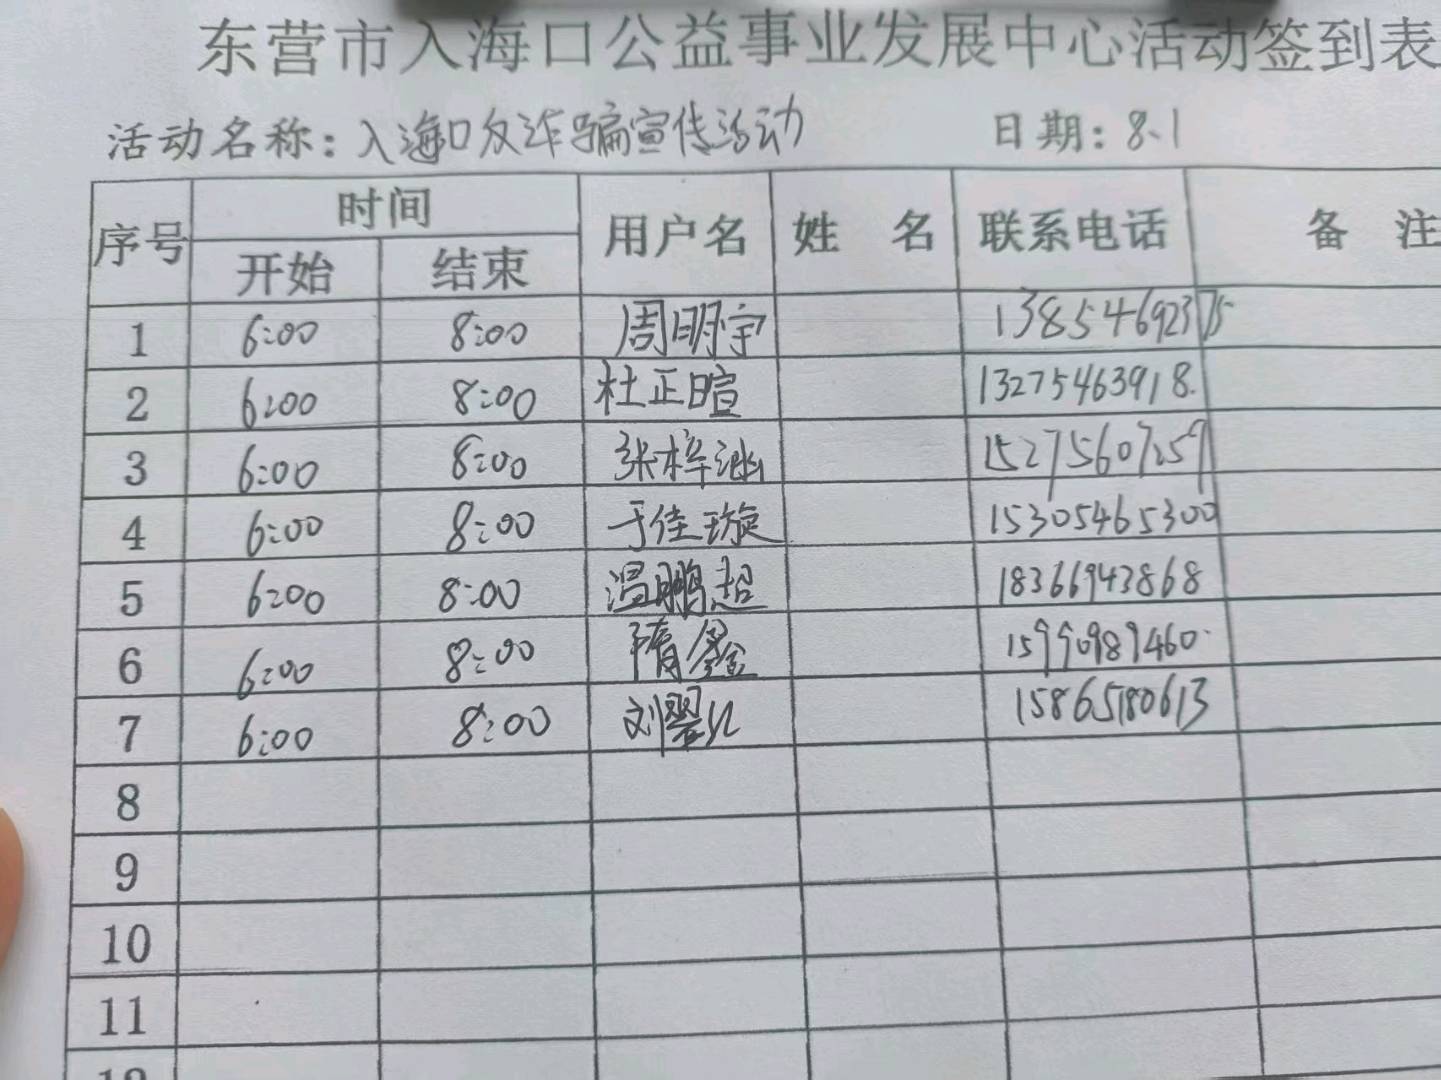 东营市入海口公益事业发展中心活动签到表
活动名称：入海口反诈骗宣传活动 日期：8.1
序号 时间 用户名 姓 名 联系电话 备 注
开始 结束
1 6:00 8:00 周明宇 13854692375
2 6:00 8:00 杜正暄 13275463918.
3 6:00 8:00 张梓 15275607259
4 6:00 8:00 于佳璇 15305465300
5 6:00 8:00 温鹏超 18366943868
6 6:00 8:00 隋鑫 15990989460
7 6:00 8:00 刘翠 15865180613
8
9
10
11
12